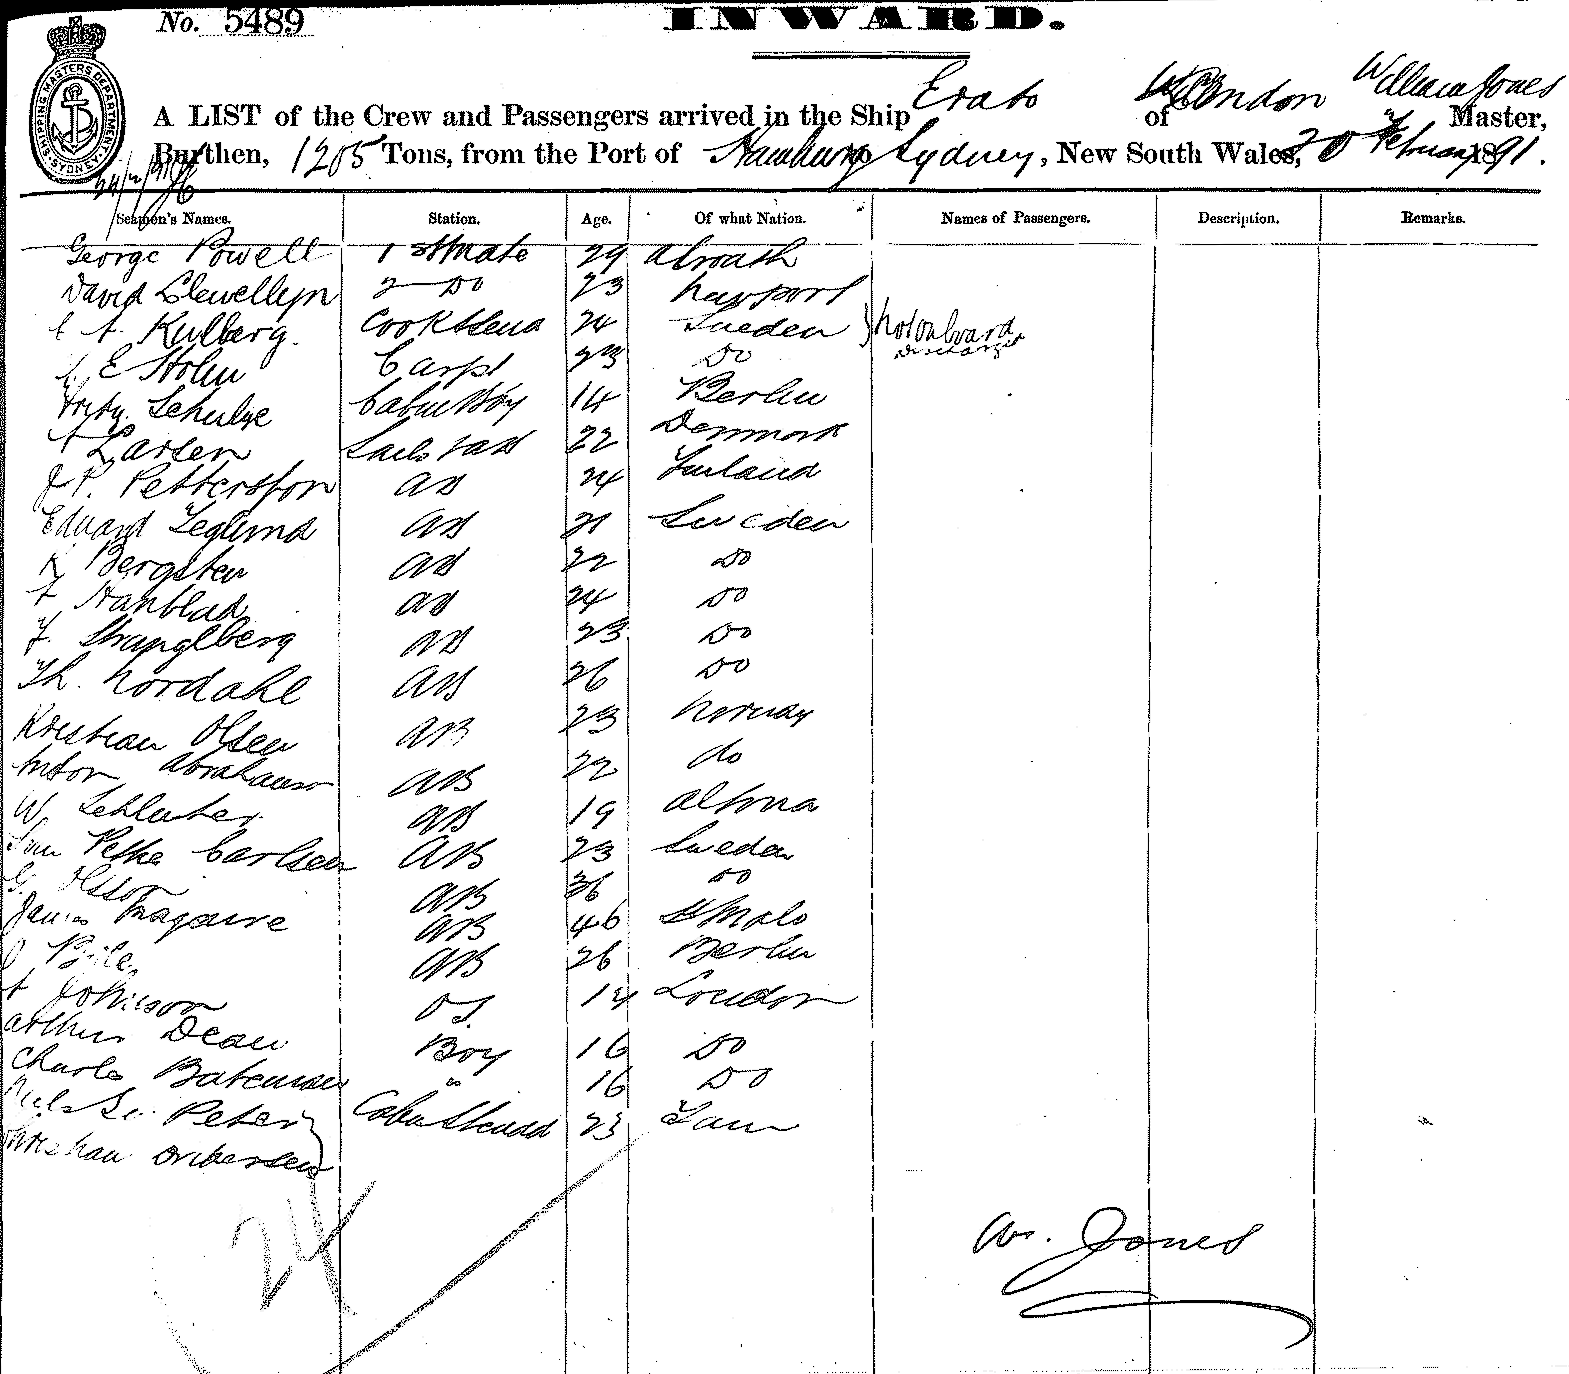 No. 5489
INWARD.
SHIPPING MASTERS DEPARTMENT SYDNEY
A LIST of the Crew and Passengers arrived in the Ship Erato of London William Jones Master,
Burthen, 1205 Tons, from the Port of Hamburg Sydney, New South Wales, 20 February 1891.
Seamen's Names. Station. Age. Of what Nation. Names of Passengers. Description. Remarks.
George Powell 1st Mate 29
David Llewellyn 2 Do 23 Newport
Kulberg. Cook 24 Sweden Not on board
E Holm Carpt 23 Do Discharged
Schulze Cabin Boy 14 Berlin
Larsen 22 Denmark
J P. Pettersson AB 24 Finland
Eduard AB 21 Sweden
K Bergsten AB 22 Do
AB 24 Do
F. AB 23 Do
Th. Nordahl AB 26 Do
Kristian Olsen AB 23 Norway
Abrahamson AB 22 do
W. Schluter AB 19 Altona
Carlsen AB 23 Sweden
G. Olsson AB 36 Do
James Magaure AB 46 St Malo
AB 26 Berlin
Johnson OS. London
Arthur Dean Boy 16 Do
Charles Bateman " 16 Do
Peter 23
24
Wm. Jones